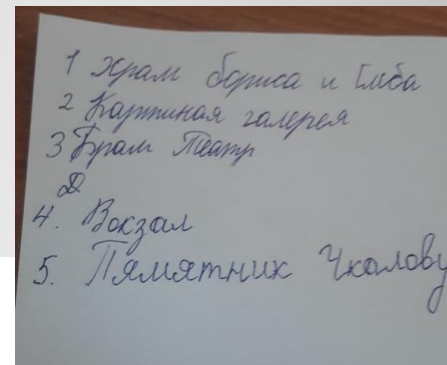 1 Храм бориса и Глеба
2 Картиная галерея
3 Драм Театр
Д
4. Вокзал
5. Пямятник Чкалову